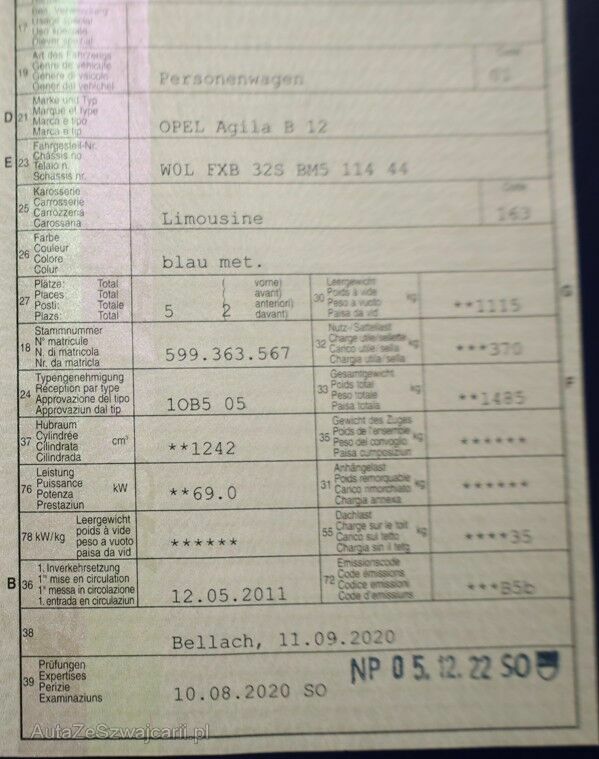 17
Usage spécial
Uso speciale
Diever spezial
Code
19 Art des Fahrzeugs
Genre de véhicule
Genere di veicolo
Gener dal vehichel
Personenwagen
01
D 21 Marke und Typ
Marque et type
Marca e tipo
Marca e tip
OPEL Agila B 12
E 23 Fahrgestell-Nr.
Châssis no
Telaio n.
Schassis nr.
W0L FXB 32S BM5 114 44
25 Karosserie
Carrosserie
Carrozzeria
Carossaria
Limousine
Code
163
26 Farbe
Couleur
Colore
Colur
blau met.
27 Plätze: Total ( vorne)
Places: Total ( avant)
Posti: Totale ( anteriori)
Plazs: Total ( davant)
5 2
G
30 Leergewicht
Poids à vide kg
Peso a vuoto
Paisa da vid
**1115
18 Stammnummer
N° matricule
N. di matricola
Nr. da matricla
599.363.567
32 Nutz-/Sattellast
Charge utile/sellette kg
Carico utile/sella
Chargia utila/sella
***370
24 Typengenehmigung
Réception par type
Approvazione del tipo
Approvaziun dal tip
1OB5 05
F
33 Gesamtgewicht
Poids total kg
Peso totale
Paisa totala
**1485
37 Hubraum
Cylindrée cm³
Cilindrata
Cilindrada
**1242
35 Gewicht des Zuges
Poids de l'ensemble kg
Peso del convoglio
Paisa cumposiziun
******
76 Leistung
Puissance kW
Potenza
Prestaziun
**69.0
31 Anhängelast
Poids remorquable kg
Carico rimorchiato
Chargia annexa
******
78 kW/kg Leergewicht
poids à vide
peso a vuoto
paisa da vid
******
55 Dachlast
Charge sur le toit kg
Carico sul tetto
Chargia sin il tetg
****35
B 36 1. Inverkehrsetzung
1re mise en circulation
1a messa in circolazione
1. entrada en circulaziun
12.05.2011
72 Emissionscode
Code émissions
Codice emissioni
Code d'emissiuns
***B5b
38
Bellach, 11.09.2020
39 Prüfungen
Expertises
Perizie
Examinaziuns
10.08.2020 SO
NP 05.12.22 SO
AutaZeSzwajcarii.pl